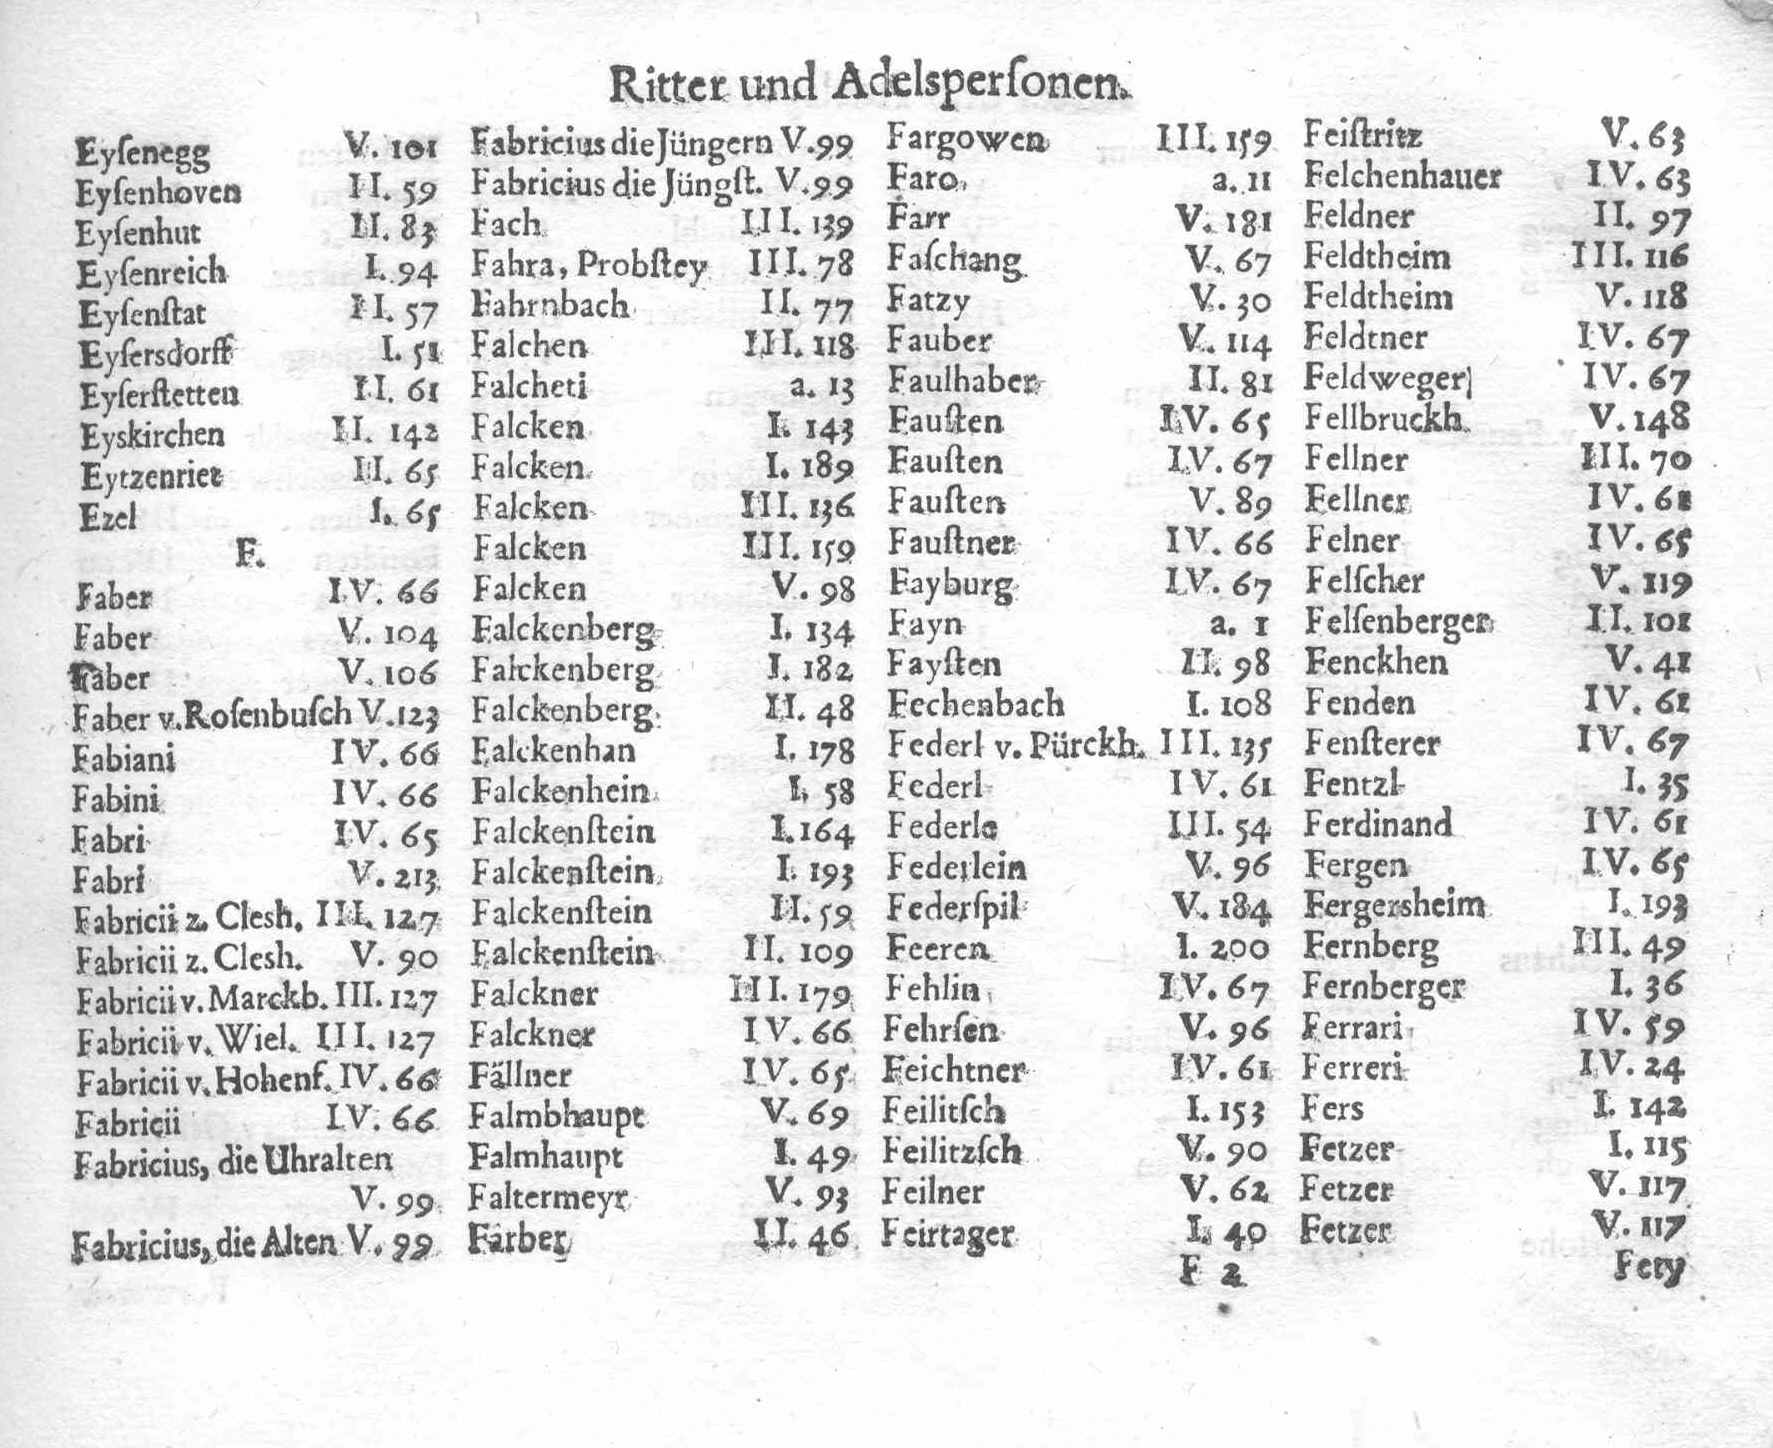 Ritter und Adelsperſonen.
Eyſenegg V. 101
Eyſenhoven II. 59
Eyſenhut II. 83
Eyſenreich I. 94
Eyſenſtat II. 57
Eyſersdorff I. 51
Eyſerſtetten II. 61
Eyskirchen II. 142
Eytzenriet II. 65
Ezel I. 65
F.
Faber IV. 66
Faber V. 104
Faber V. 106
Faber v. Roſenbuſch V. 123
Fabiani IV. 66
Fabini IV. 66
Fabri IV. 65
Fabri V. 213
Fabricii z. Clesh. III. 127
Fabricii z. Clesh. V. 90
Fabricii v. Marckb. III. 127
Fabricii v. Wiel. III. 127
Fabricii v. Hohenf. IV. 66
Fabricii IV. 66
Fabricius, die Uhralten
V. 99
Fabricius, die Alten V. 99
Fabricius die Jüngern V. 99
Fabricius die Jüngſt. V. 99
Fach III. 139
Fahra, Probſtey III. 78
Fahrnbach II. 77
Falchen III. 118
Falcheti a. 13
Falcken I. 143
Falcken I. 189
Falcken III. 136
Falcken III. 159
Falcken V. 98
Falckenberg I. 134
Falckenberg I. 182
Falckenberg II. 48
Falckenhan I. 178
Falckenhein I. 58
Falckenſtein I. 164
Falckenſtein I. 193
Falckenſtein II. 59
Falckenſtein II. 109
Falckner III. 179
Falckner IV. 66
Fällner IV. 65
Falmbhaupt V. 69
Falmhaupt I. 49
Faltermeyr V. 93
Färber II. 46
Fargowen III. 159
Faro a. 11
Farr V. 181
Faſchang V. 67
Fatzy V. 30
Fauber V. 114
Faulhaber II. 81
Fauſten IV. 65
Fauſten IV. 67
Fauſten V. 89
Fauſtner IV. 66
Fayburg IV. 67
Fayn a. 1
Fayſten II. 98
Fechenbach I. 108
Federl v. Pürckh. III. 135
Federl IV. 61
Federle III. 54
Federlein V. 96
Federſpil V. 184
Feeren I. 200
Fehlin IV. 67
Fehrſen V. 96
Feichtner IV. 61
Feilitſch I. 153
Feilitzſch V. 90
Feilner V. 62
Feirtager I. 40
Feiſtritz V. 63
Felchenhauer IV. 63
Feldner II. 97
Feldtheim III. 116
Feldtheim V. 118
Feldtner IV. 67
Feldweger IV. 67
Fellbruckh. V. 148
Fellner III. 70
Fellner IV. 61
Felner IV. 65
Felſcher V. 119
Felſenberger II. 101
Fenckhen V. 41
Fenden IV. 61
Fenſterer IV. 67
Fentzl I. 35
Ferdinand IV. 61
Fergen IV. 65
Fergersheim I. 193
Fernberg III. 49
Fernberger I. 36
Ferrari IV. 59
Ferreri IV. 24
Fers I. 142
Fetzer I. 115
Fetzer V. 117
Fetzer V. 117
F 2 Fety